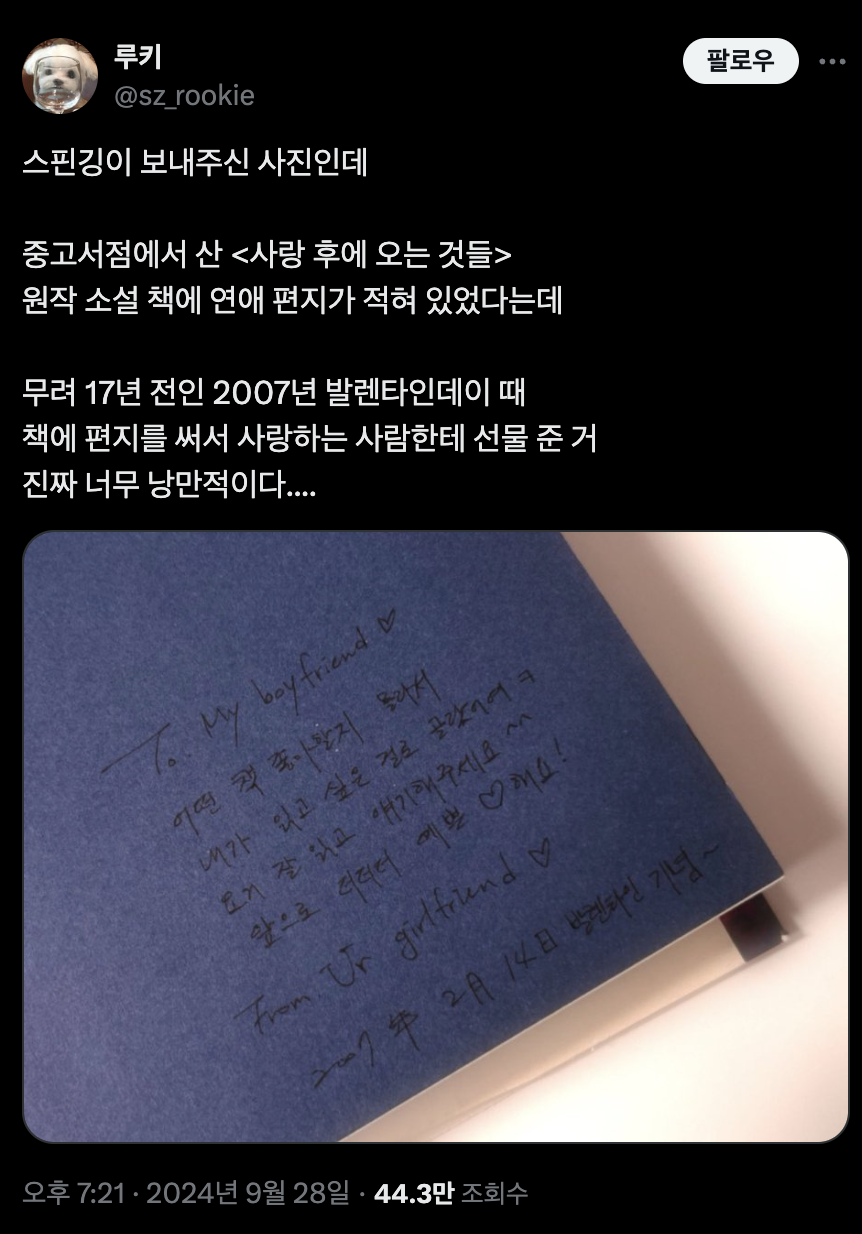 루키
팔로우
@sz_rookie
스핀깅이 보내주신 사진인데
중고서점에서 산 <사랑 후에 오는 것들>
원작 소설 책에 연애 편지가 적혀 있었다는데
무려 17년 전인 2007년 발렌타인데이 때
책에 편지를 써서 사랑하는 사람한테 선물 준 거
진짜 너무 낭만적이다....
To. My boyfriend ♡
어떤 책 좋아할지 몰라서
내가 읽고 싶은 걸로 골랐어여 ㅋ
요거 잘 읽고 얘기해주세요 ^^
앞으로 더더더 예쁘 ♡해요!
From. Ur girlfriend ♡
2007年 2月 14日 발렌타인 기념~
오후 7:21 · 2024년 9월 28일 · 44.3만 조회수